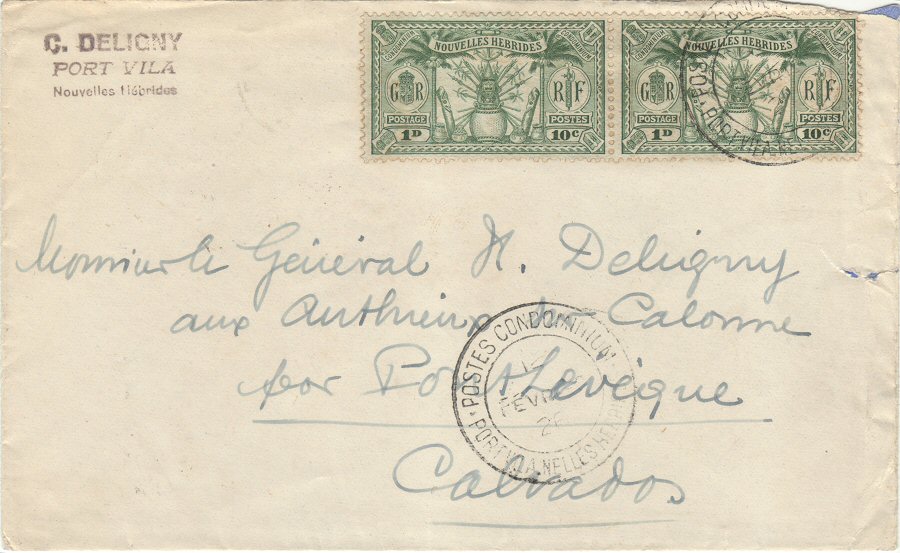 C. DELIGNY
PORT VILA
Nouvelles Hébrides
NOUVELLES HEBRIDES
G R
R F
POSTAGE
POSTES
1D
10c
NOUVELLES HEBRIDES
G R
R F
POSTAGE
POSTES
1D
10c
PORT VILA
Monsieur le Général H. Deligny
aux Authieux sur Calonne
par Pont Lévêque
Calvados
POSTES CONDOMINIUM
FEVR
PORT VILA NELLES HEBR